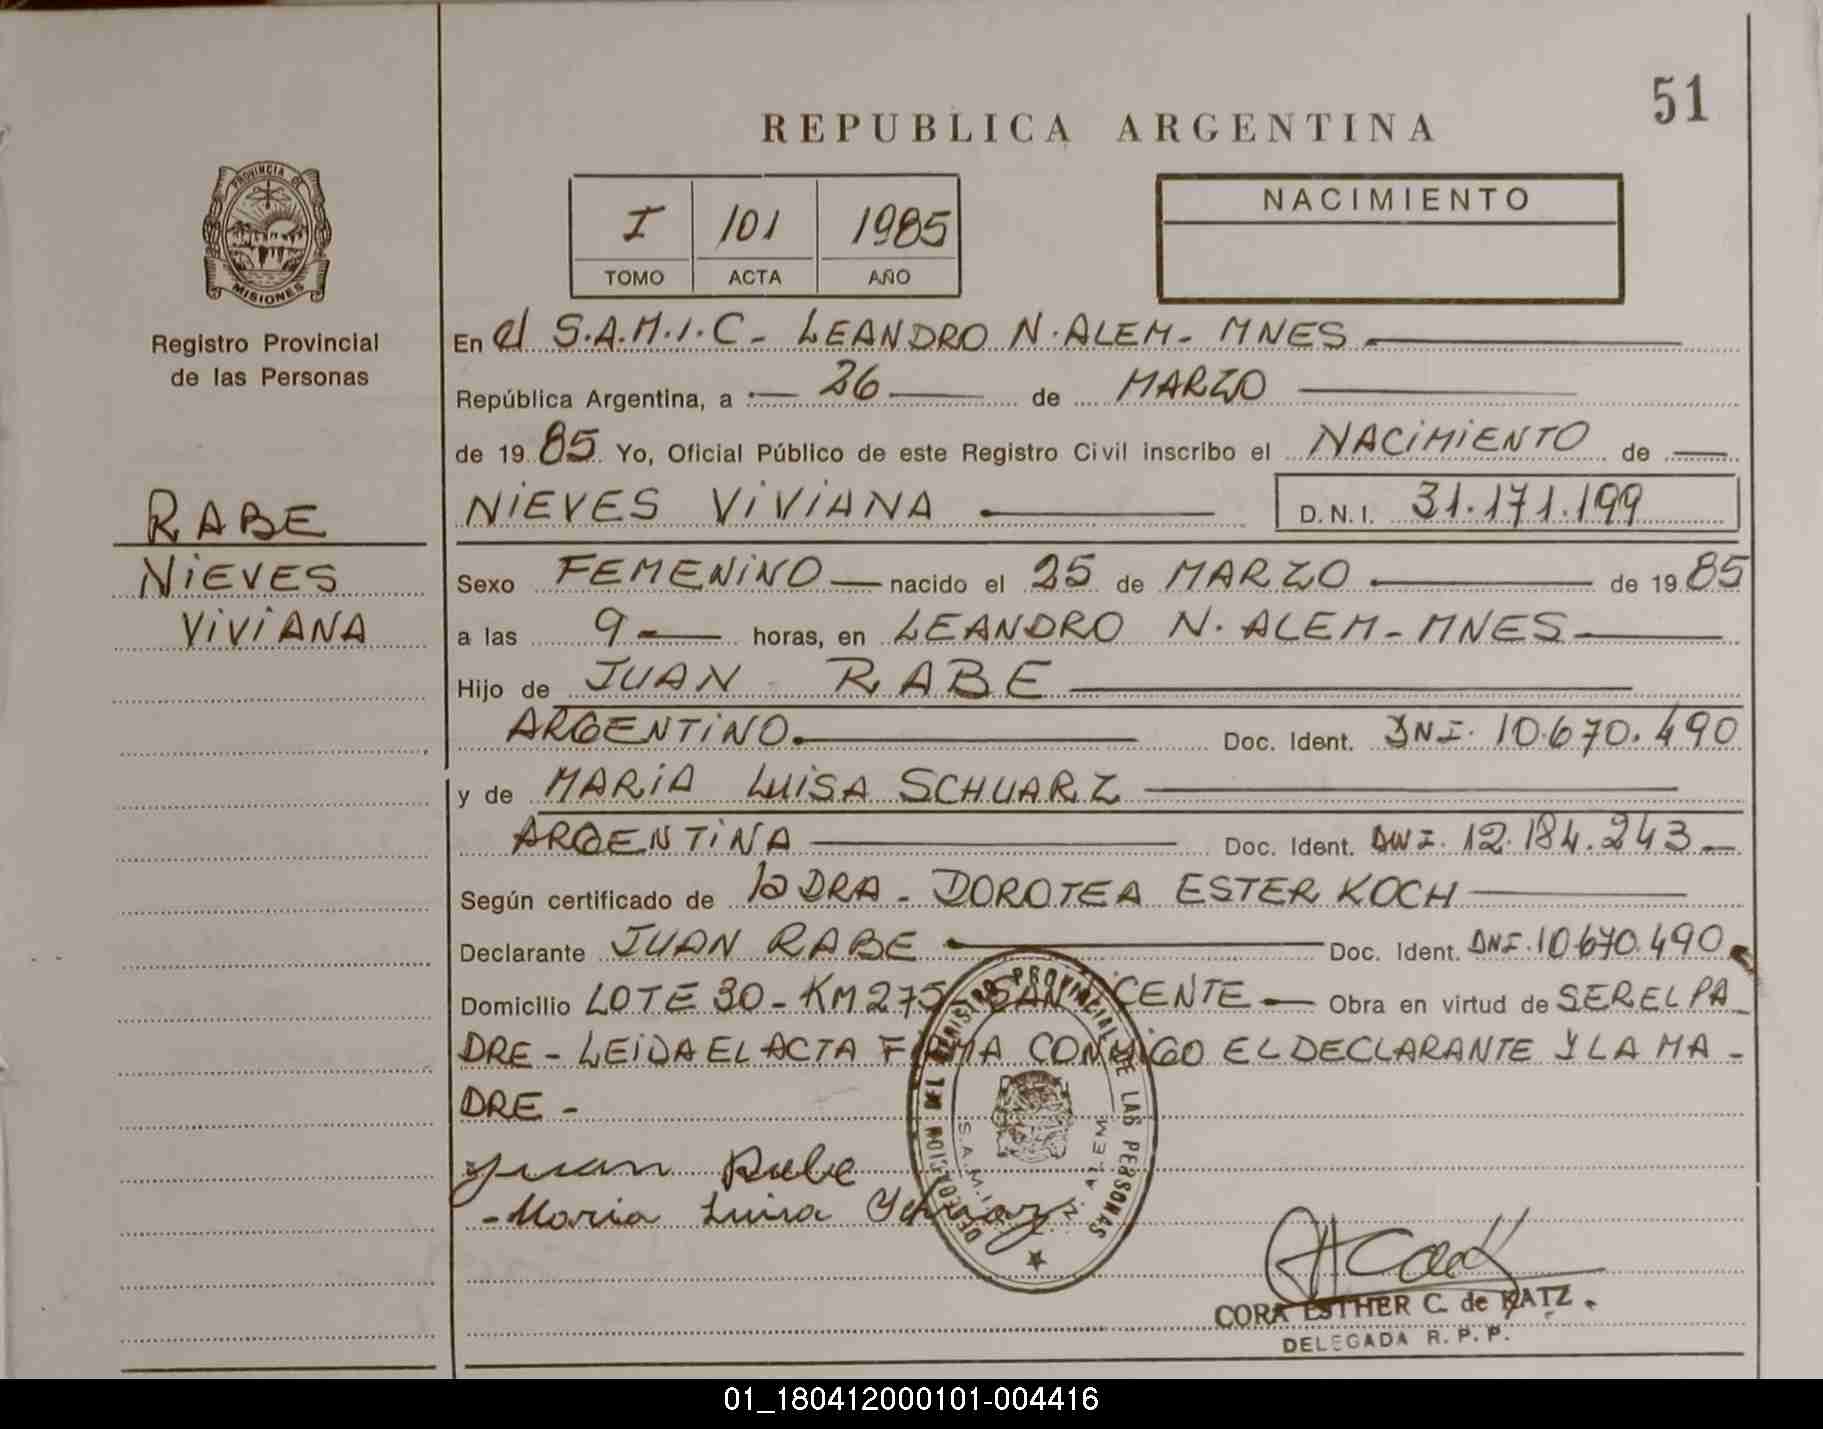 51
REPUBLICA ARGENTINA
PROVINCIA DE
MISIONES
Registro Provincial
de las Personas
I 101 1985
TOMO ACTA AÑO
NACIMIENTO
En el S.A.M.I.C - LEANDRO N. ALEM - MNES
República Argentina, a 26 de MARZO
de 1985 Yo, Oficial Público de este Registro Civil inscribo el NACIMIENTO de
RABE
NIEVES
VIVIANA
NIEVES VIVIANA D.N.I. 31.171.199
Sexo FEMENINO nacido el 25 de MARZO de 1985
a las 9 horas, en LEANDRO N. ALEM - MNES
Hijo de JUAN RABE
ARGENTINO Doc. Ident. DNI. 10.670.490
y de MARIA LUISA SCHUARZ
ARGENTINA Doc. Ident. DNI. 12.184.243
Según certificado de la DRA - DOROTEA ESTER KOCH
Declarante JUAN RABE Doc. Ident. DNI. 10.670.490
Domicilio LOTE 30 - KM 275 SAN VICENTE Obra en virtud de SER EL PA
DRE - LEIDA EL ACTA FIRMA CONMIGO EL DECLARANTE Y LA MA -
DRE -
Juan Rabe
- Maria Luisa Schuarz
DELEGACION DEL REGISTRO PROVINCIAL DE LAS PERSONAS
S.A.M.I.C. N. ALEM
CORA ESTHER C. de KATZ
DELEGADA R. P. P.
01_180412000101-004416